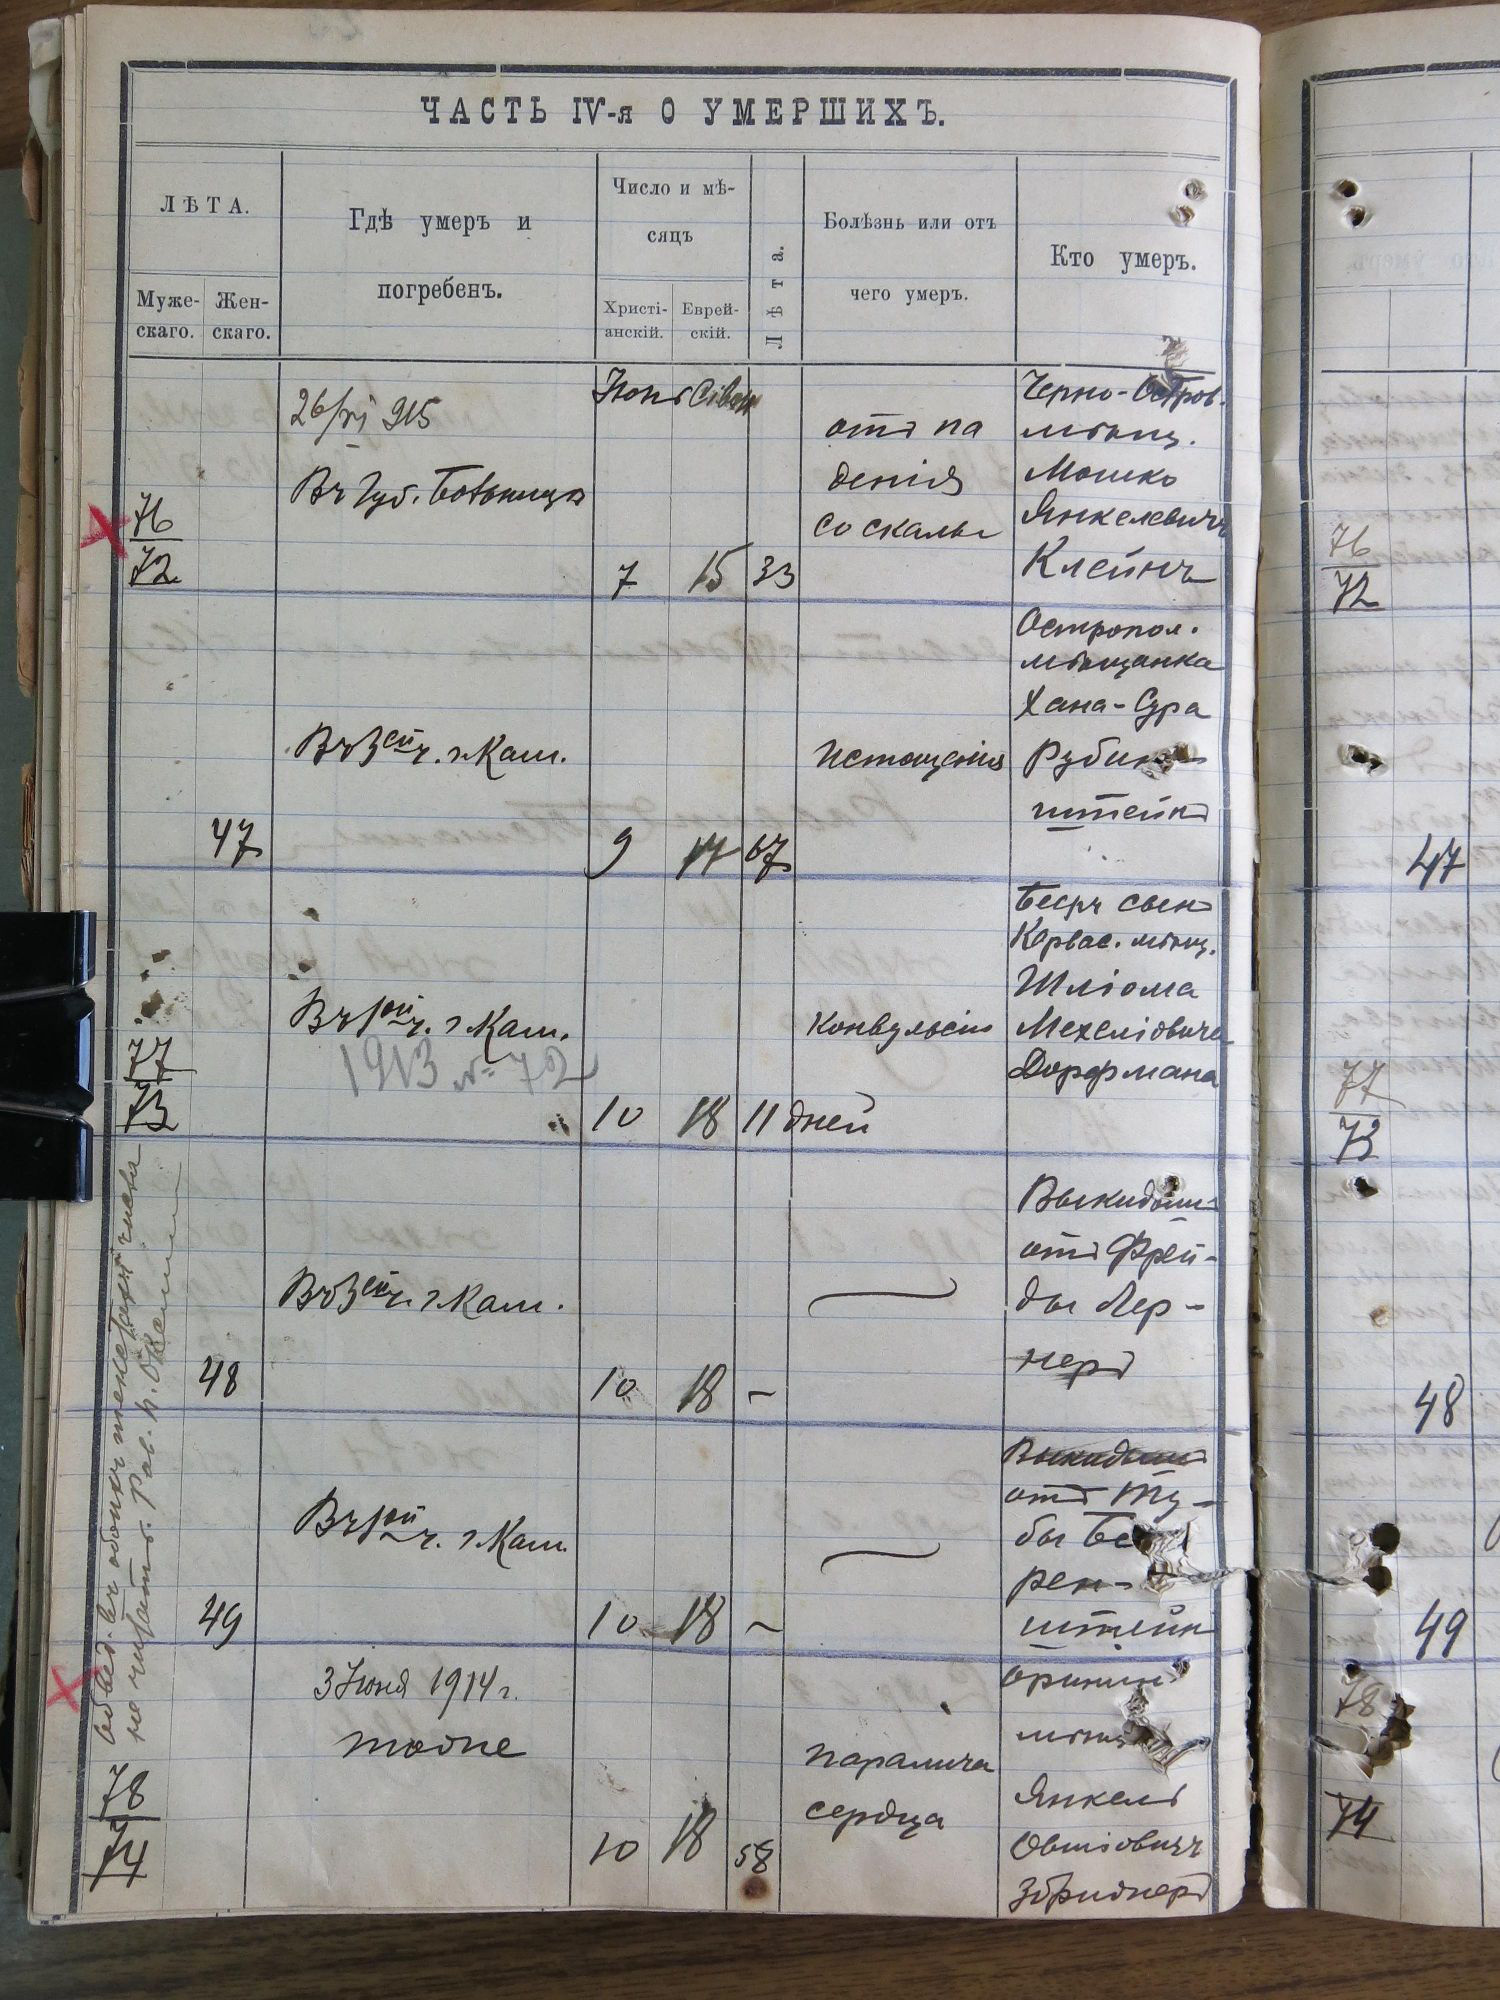 ЧАСТЬ IV-я О УМЕРШИХЪ.
ЛѢТА.
Муже-
скаго.
Жен-
скаго.
Гдѣ умеръ и
погребенъ.
Число и мѣ-
сяцъ
Христі-
анскій.
Еврей-
скій.
Лѣта.
Болѣзнь или отъ
чего умеръ.
Кто умеръ.
76
72
26/VI 915
Въ Губ. Больницѣ
Іюнь
Сіван
7
15
33
отъ па
денія
со скалы
Черно-Остров.
мѣщ.
Мошко
Янкелевичъ
Клейнъ
47
Въ 3ей ч. г. Кам.
9
17
67
Истощенія
Остропол.
мѣщанка
Хана-Сура
Рубин
штейнъ
77
73
Въ 1ой ч. г. Кам.
1913 № 72
10
18
11 дней
Конвульсіи
Беръ сынъ
мѣщ.
Шліома
Мехеліовича
Дорфмана
48
Въ 3ей ч. г. Кам.
10
18
-
Выкидышъ
отъ Фрей-
ды Лер-
неръ
49
Въ 1ой ч. г. Кам.
10
18
-
Выкидышъ
отъ Ту-
бы Бе
рен-
штейнъ
78
74
3 Іюня 1914 г.
тоже
10
18
58
паралича
сердца
Оринин.
мѣщ
Янкель
Овшіовичъ
въ обоихъ
не читать. Рав.
76
72
47
77
73
48
49
78
74